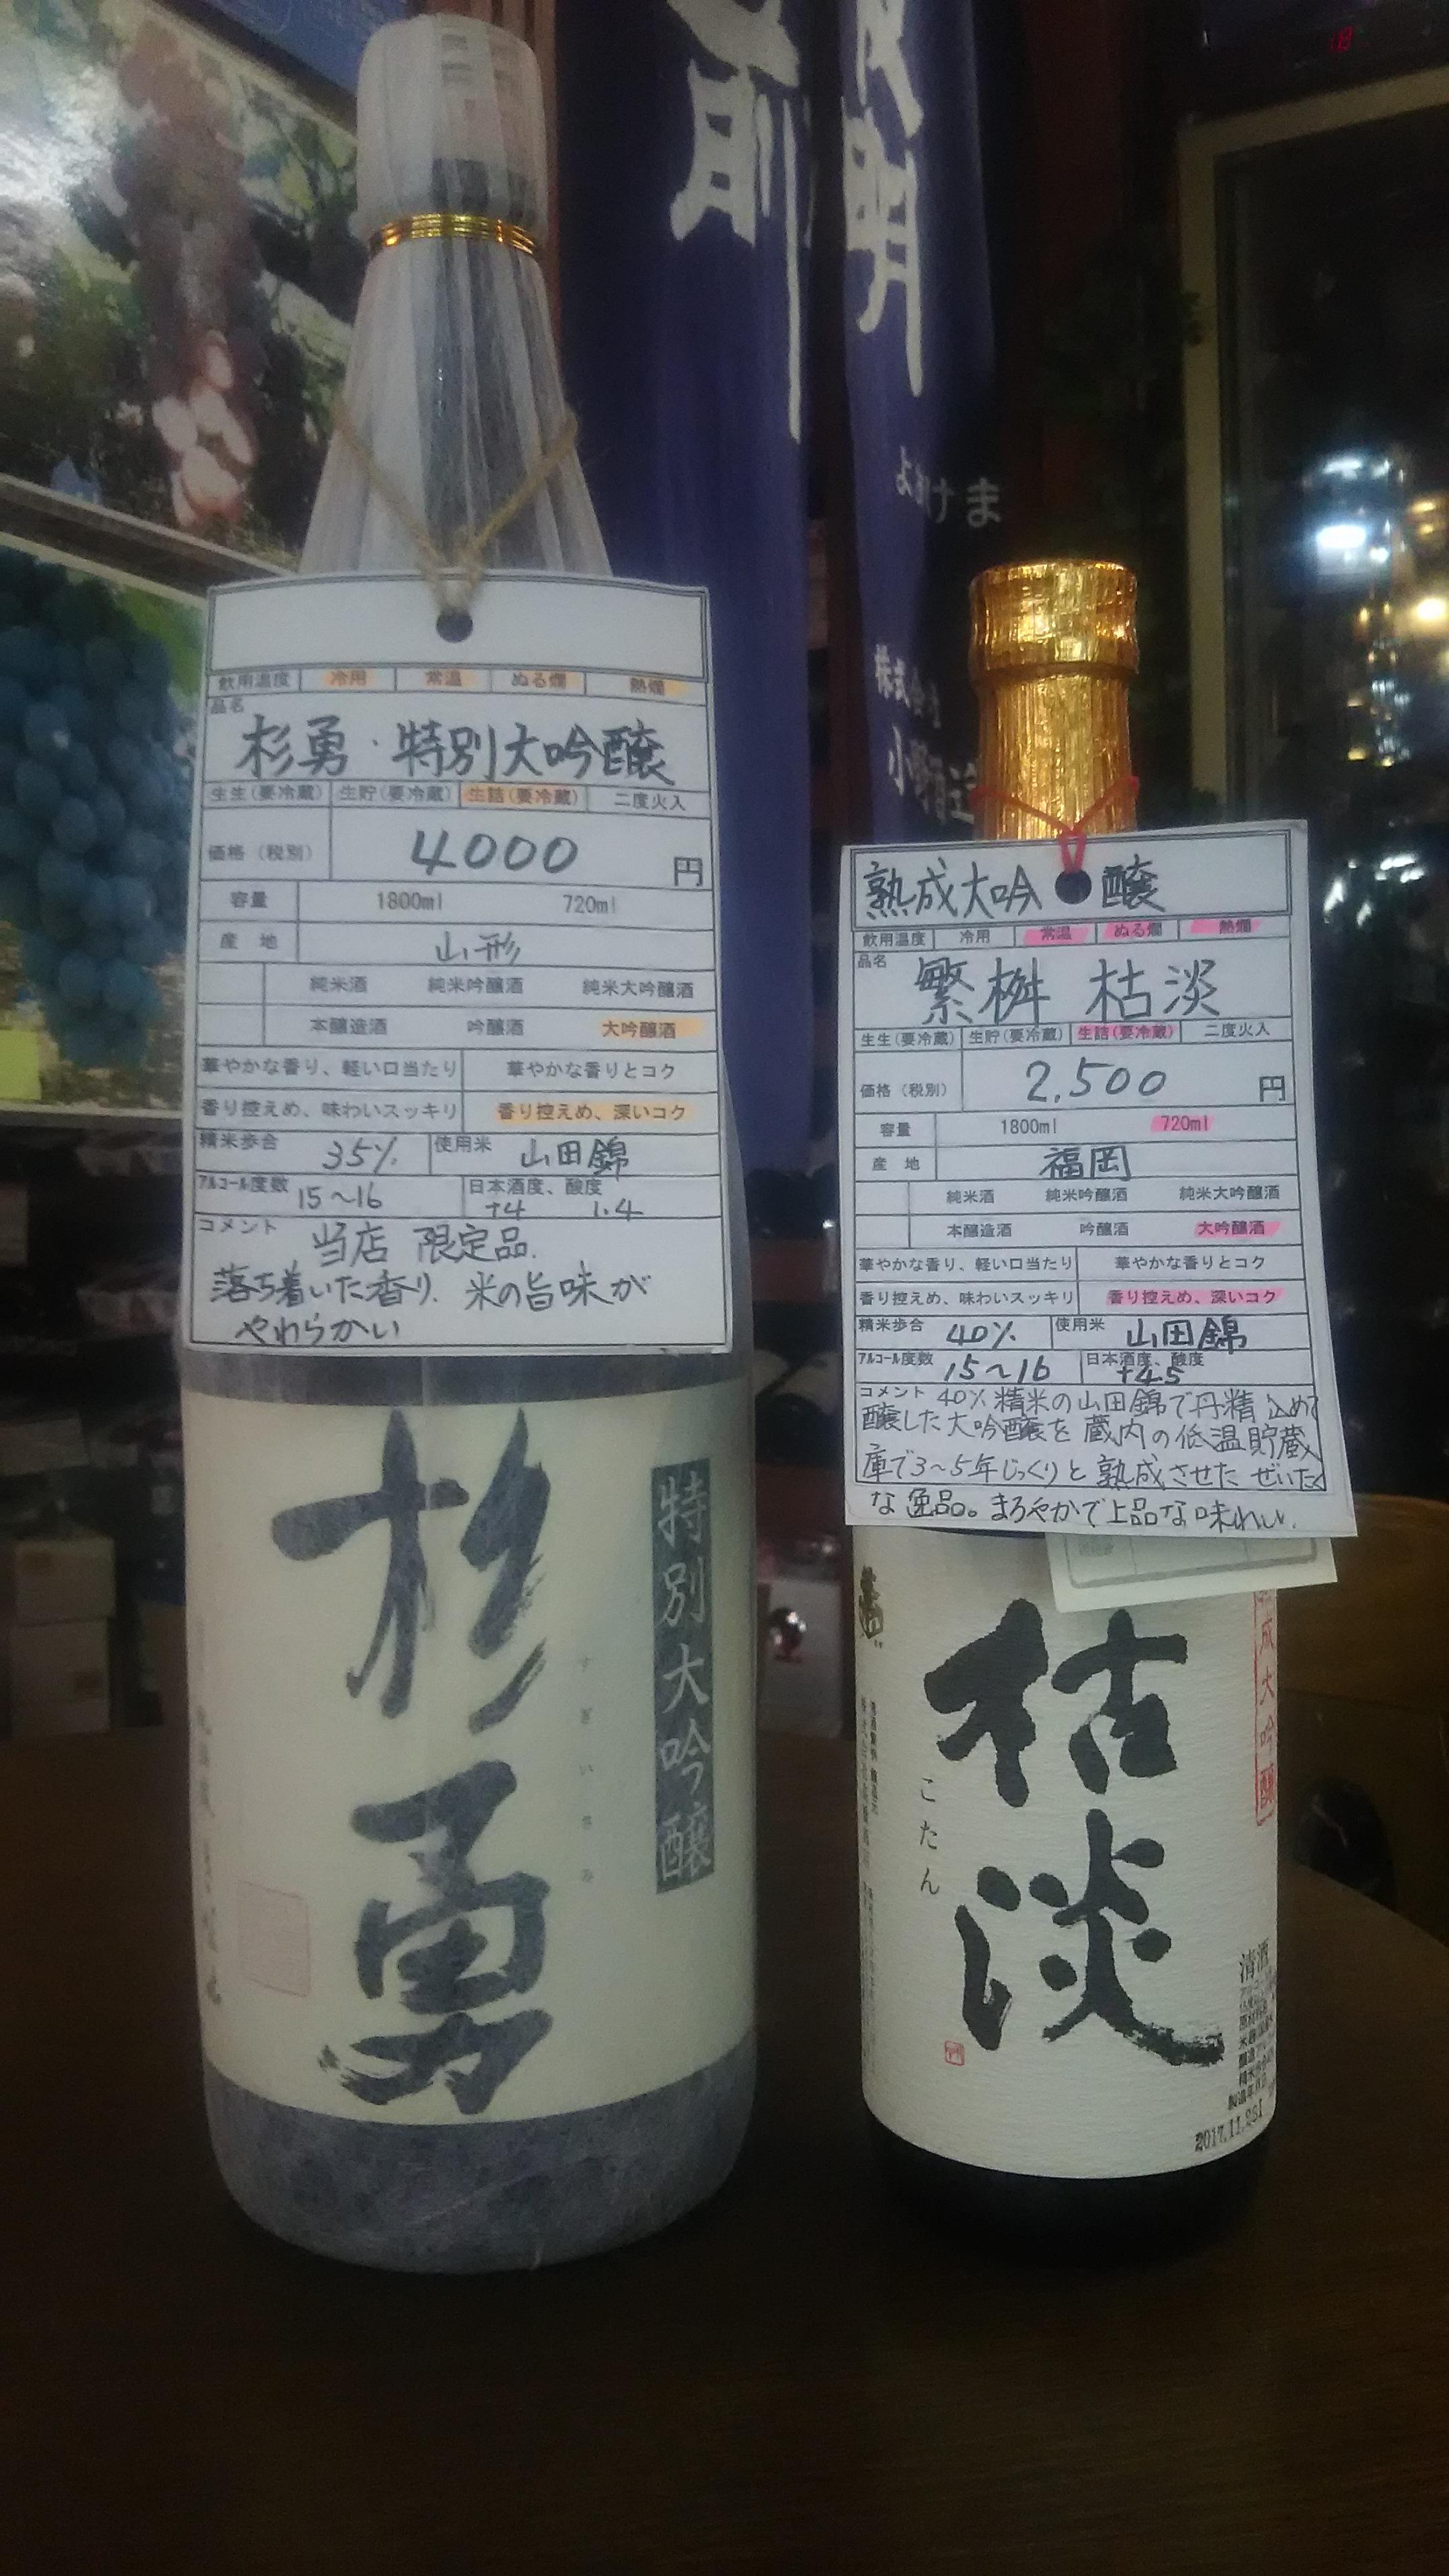 前
明
よあけま
株式会社
飲用温度 冷用 常温 ぬる燗 熱燗
品名
杉勇・特別大吟醸
生生(要冷蔵) 生貯(要冷蔵) 生詰(要冷蔵) 二度火入
価格(税別) 4000 円
容量 1800ml 720ml
産地 山形
純米酒 純米吟醸酒 純米大吟醸酒
本醸造酒 吟醸酒 大吟醸酒
華やかな香り、軽い口当たり 華やかな香りとコク
香り控えめ、味わいスッキリ 香り控えめ、深いコク
精米歩合 35% 使用米 山田錦
アルコール度数 15~16 日本酒度、酸度 +4 1.4
コメント 当店 限定品.
落ち着いた香り. 米の旨味が
やわらかい
特別大吟醸
杉勇
すぎいさみ
熟成大吟醸
飲用温度 冷用 常温 ぬる燗 熱燗
品名 繁桝 枯淡
生生(要冷蔵) 生貯(要冷蔵) 生詰(要冷蔵) 二度火入
価格(税別) 2,500 円
容量 1800ml 720ml
産地 福岡
純米酒 純米吟醸酒 純米大吟醸酒
本醸造酒 吟醸酒 大吟醸酒
華やかな香り、軽い口当たり 華やかな香りとコク
香り控えめ、味わいスッキリ 香り控えめ、深いコク
精米歩合 40% 使用米 山田錦
アルコール度数 15~16 日本酒度、酸度 +4.5
コメント 40%精米の山田錦で丹精込めて
醸した大吟醸を蔵内の低温貯蔵
庫で3~5年じっくりと熟成させたぜいたく
な逸品。まろやかで上品な味わい.
熟成大吟醸
枯淡
こたん
清酒
2017.11.